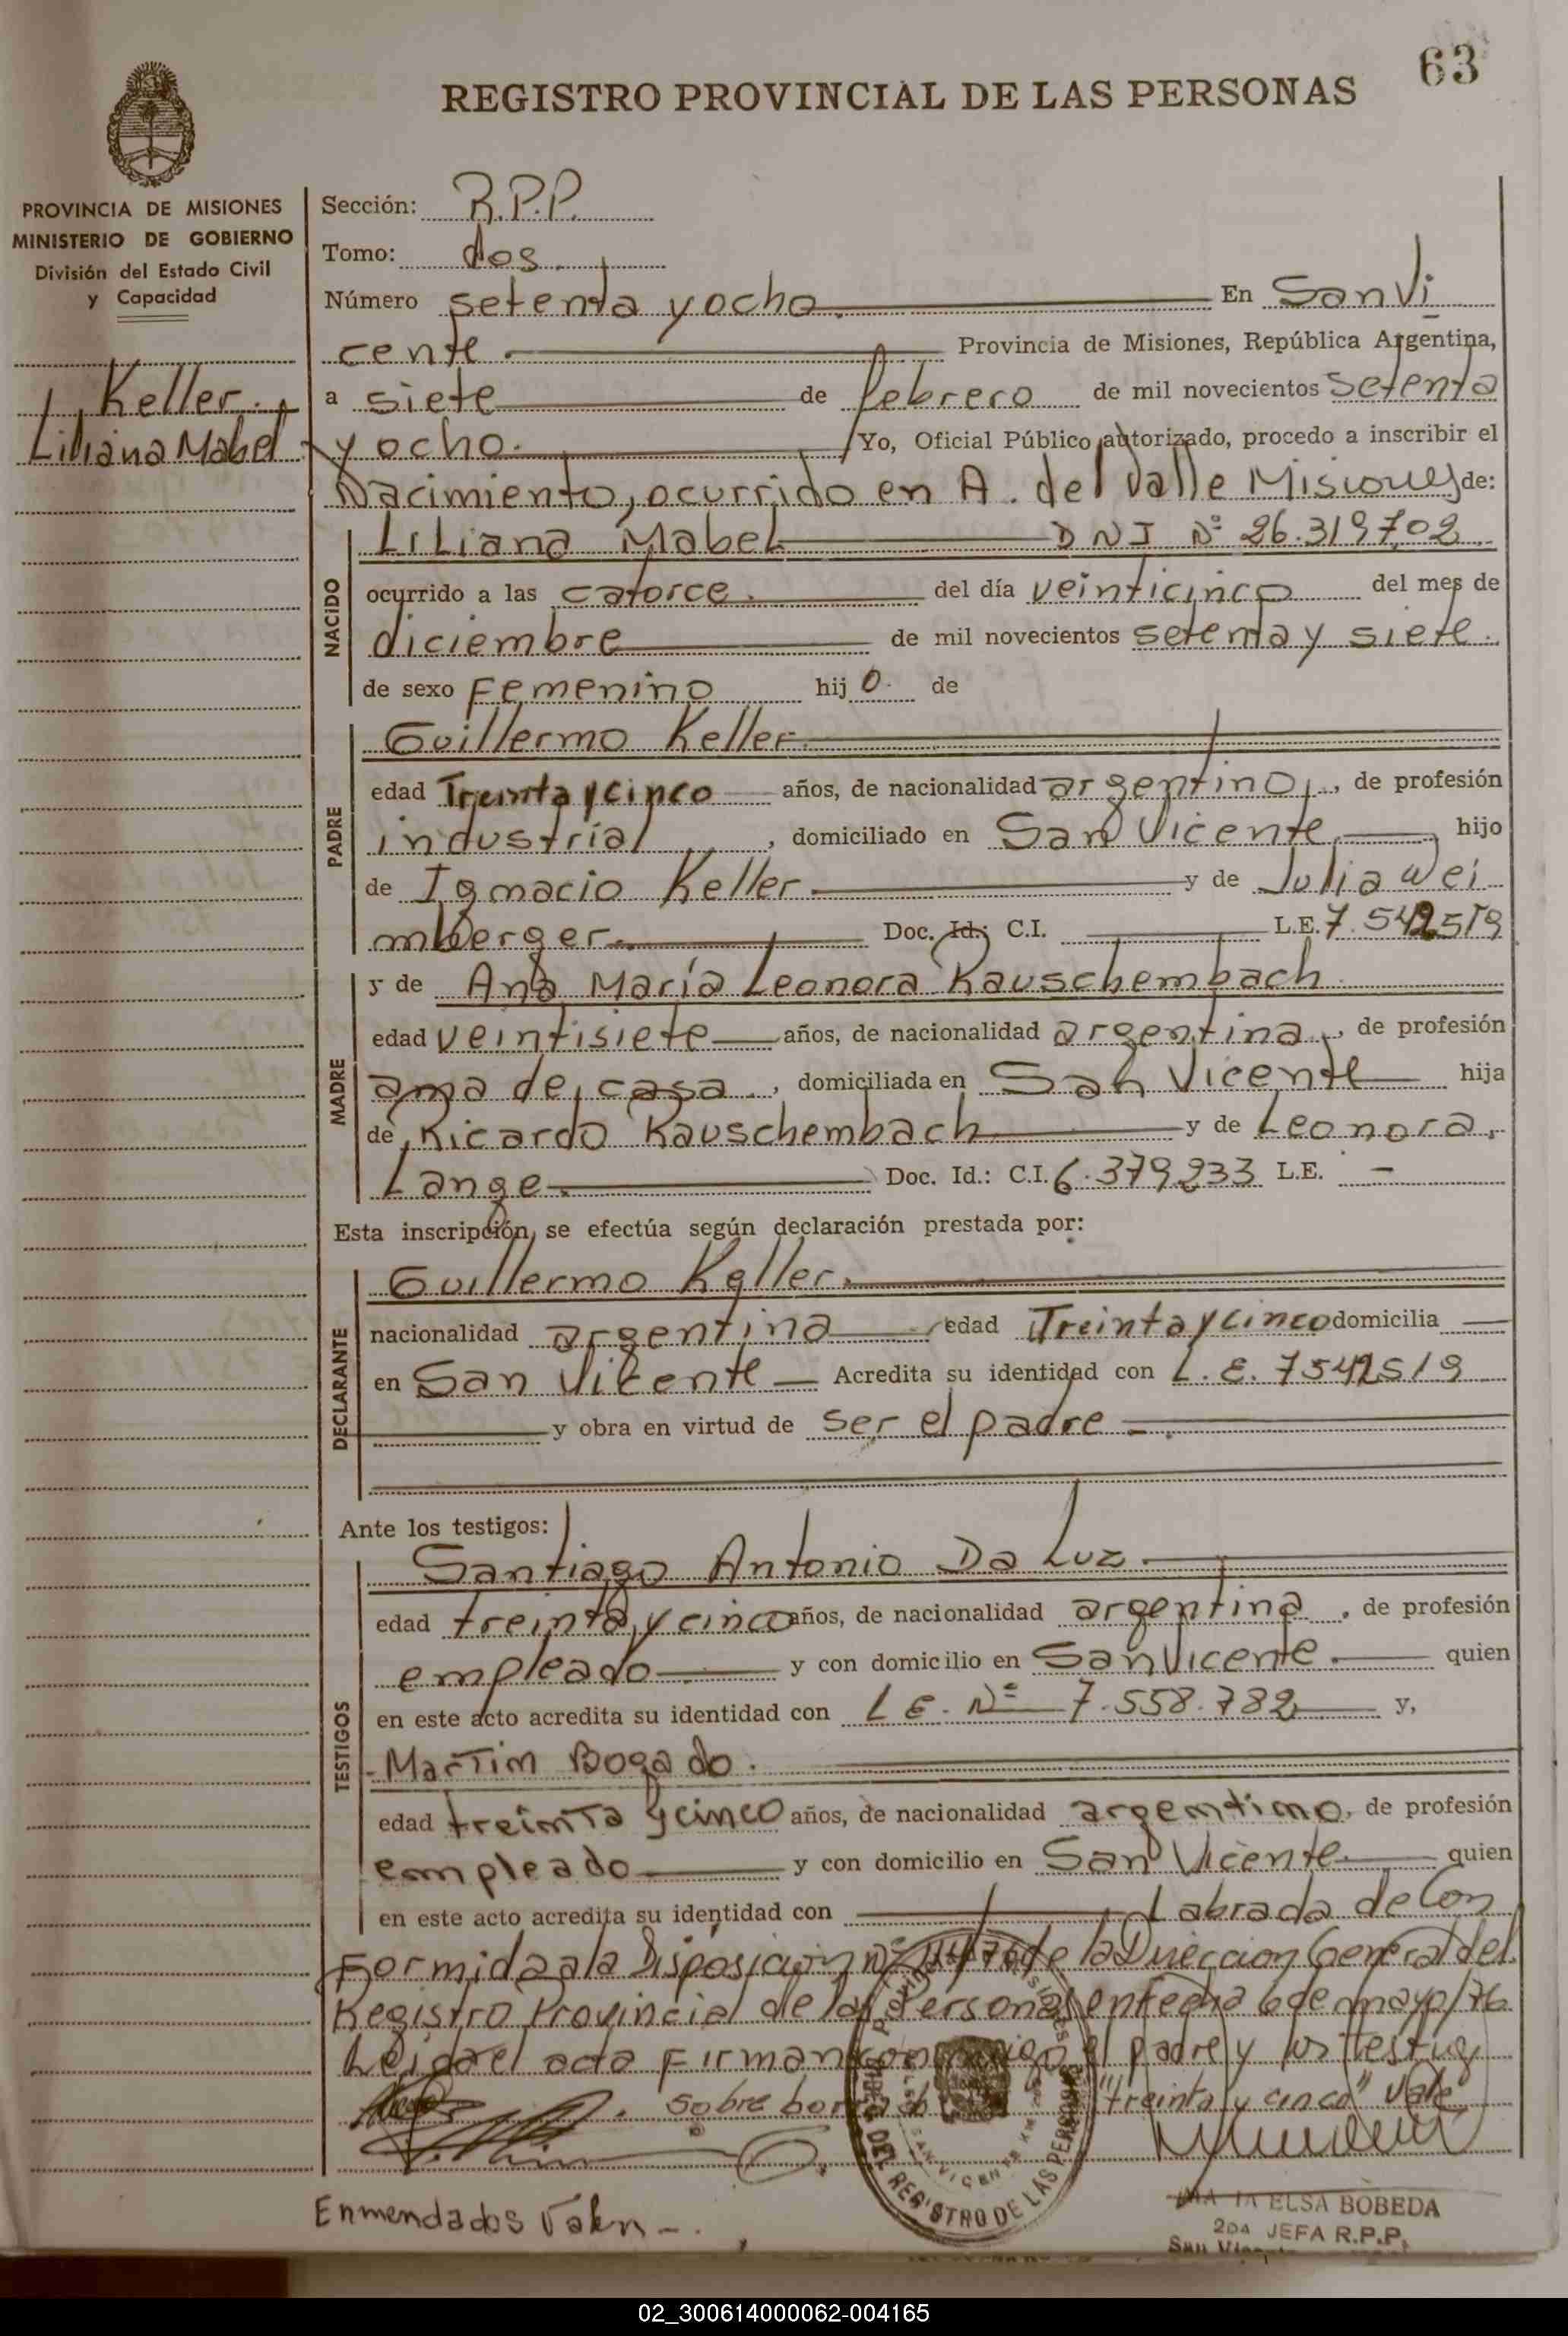 63
REGISTRO PROVINCIAL DE LAS PERSONAS
PROVINCIA DE MISIONES
MINISTERIO DE GOBIERNO
División del Estado Civil
y Capacidad
Keller.
Liliana Mabel
Sección: R.P.P.
Tomo: dos.
Número setenta y ocho. En San Vi
cente. Provincia de Misiones, República Argentina,
a siete de febrero de mil novecientos setenta
y ocho. Yo, Oficial Público autorizado, procedo a inscribir el
Nacimiento, ocurrido en A. del Valle Misiones de:
NACIDO
Liliana Mabel DNI Nº 26.319702
ocurrido a las catorce. del día veinticinco del mes de
diciembre de mil novecientos setenta y siete.
de sexo Femenino hijo. de
PADRE
Guillermo Keller.
edad Treinta y cinco años, de nacionalidad argentino, de profesión
industrial, domiciliado en San Vicente, hijo
de Ignacio Keller. y de Julia Wei
mberger. Doc. Id.: C.I. L.E. 7.542519
MADRE
y de Ana María Leonora Rauschembach
edad veintisiete años, de nacionalidad argentina, de profesión
ama de casa, domiciliada en San Vicente hija
de Ricardo Rauschembach y de Leonora,
Lange. Doc. Id.: C.I. 6.379233 L.E. -
Esta inscripción, se efectúa según declaración prestada por:
DECLARANTE
Guillermo Keller.
nacionalidad argentina edad Treinta y cinco domicilia
en San Vicente Acredita su identidad con L.E. 7542519
y obra en virtud de ser el padre -.
Ante los testigos:
TESTIGOS
Santiago Antonio Da Luz.
edad treinta y cinco años, de nacionalidad argentina, de profesión
empleado y con domicilio en San Vicente. quien
en este acto acredita su identidad con L E. Nº 7.558.782 y,
Martim Bogado.
edad treinta y cinco años, de nacionalidad argentino, de profesión
empleado y con domicilio en San Vicente. quien
en este acto acredita su identidad con Labrada de Con
Formidad a la Disposición nº de la Direccion General del
Registro Provincial de las Personas en fecha 6 de mayo/76
Leida el acta Firman conmigo el padre y los testig
. Sobre "treinta y cinco" Vale
DEL REGISTRO DE LAS PERSONAS
SAN VICENTE
Enmendados Valen -.
ELSA BOBEDA
2DA JEFA R.P.P.
San
02_300614000062-004165